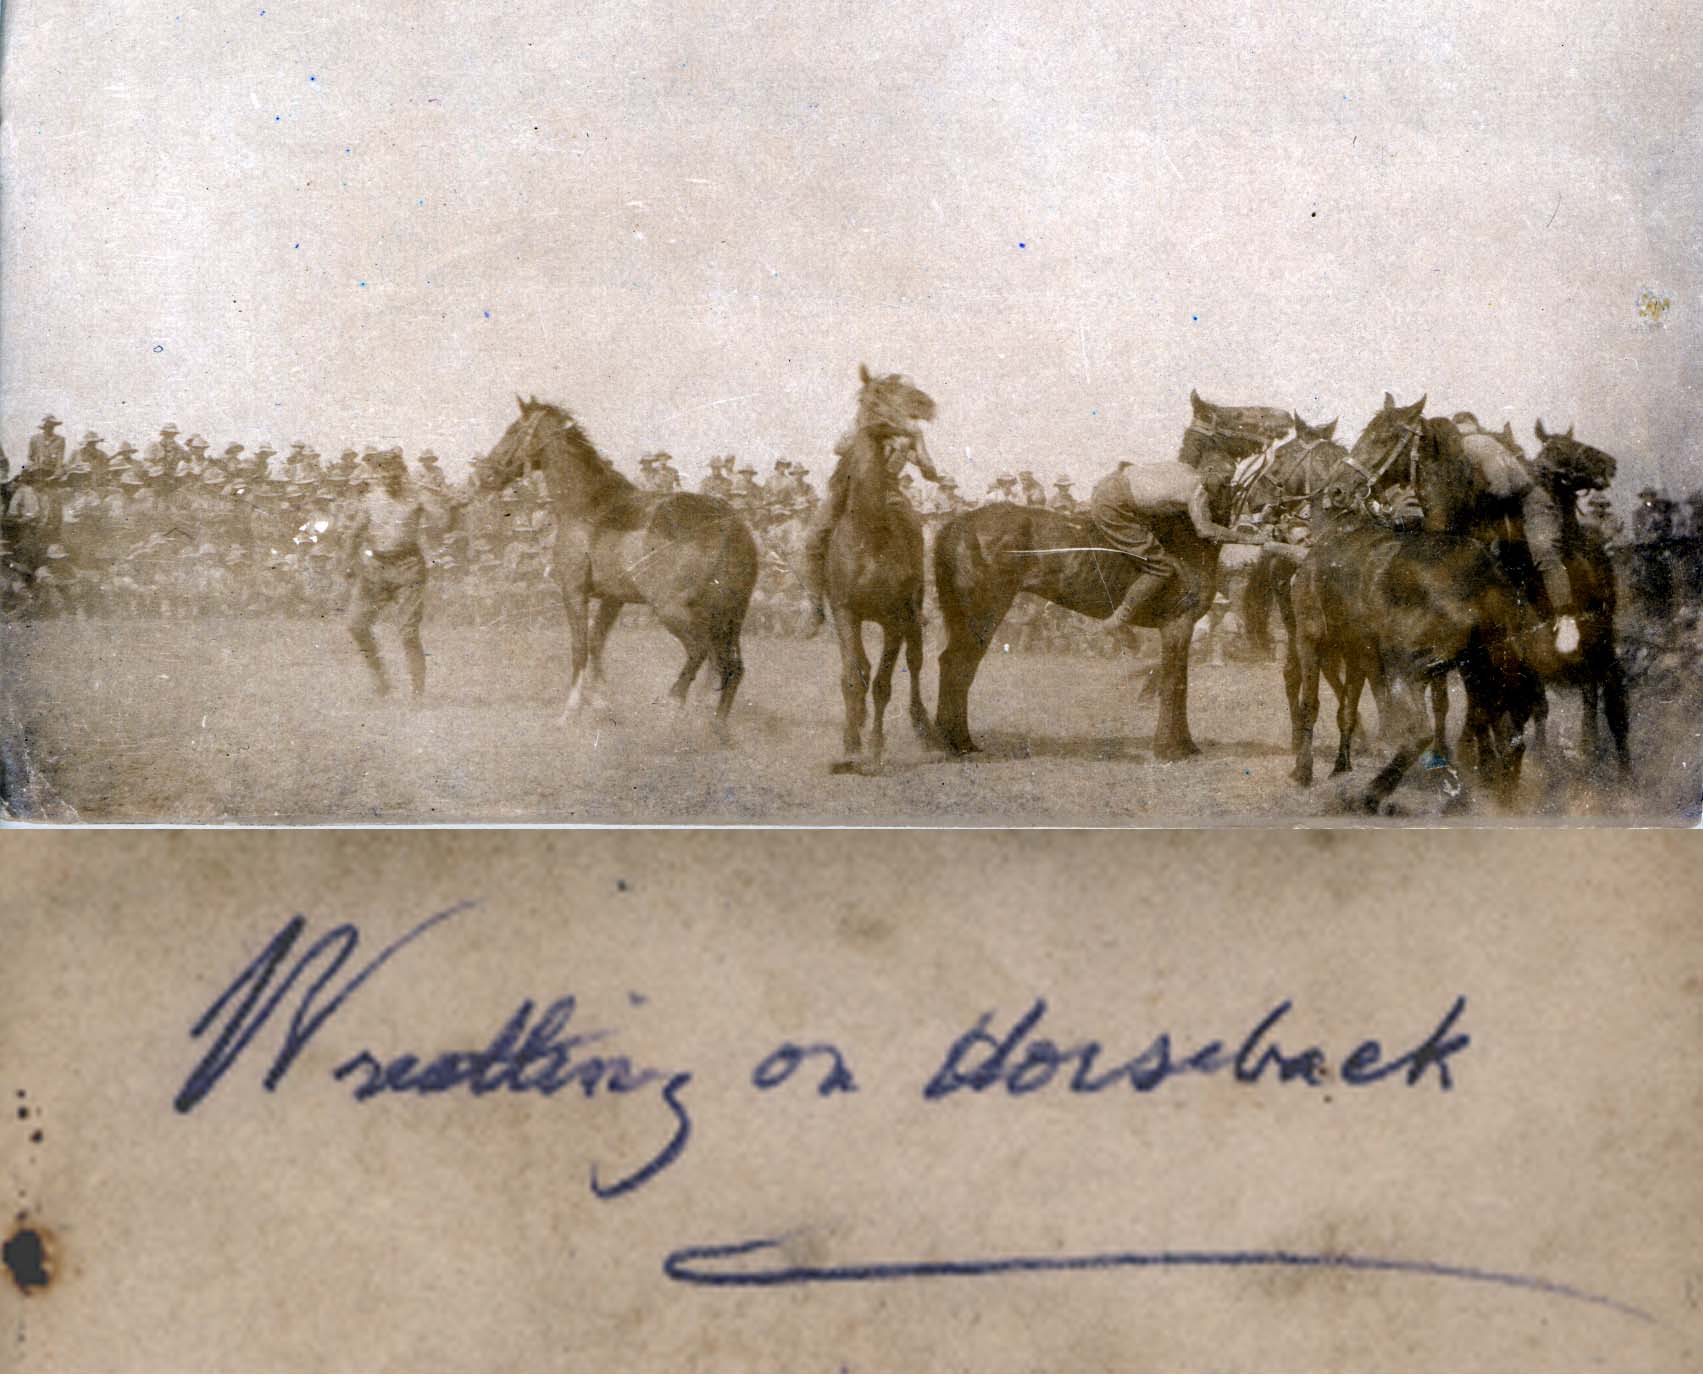 Wrestling on Horseback